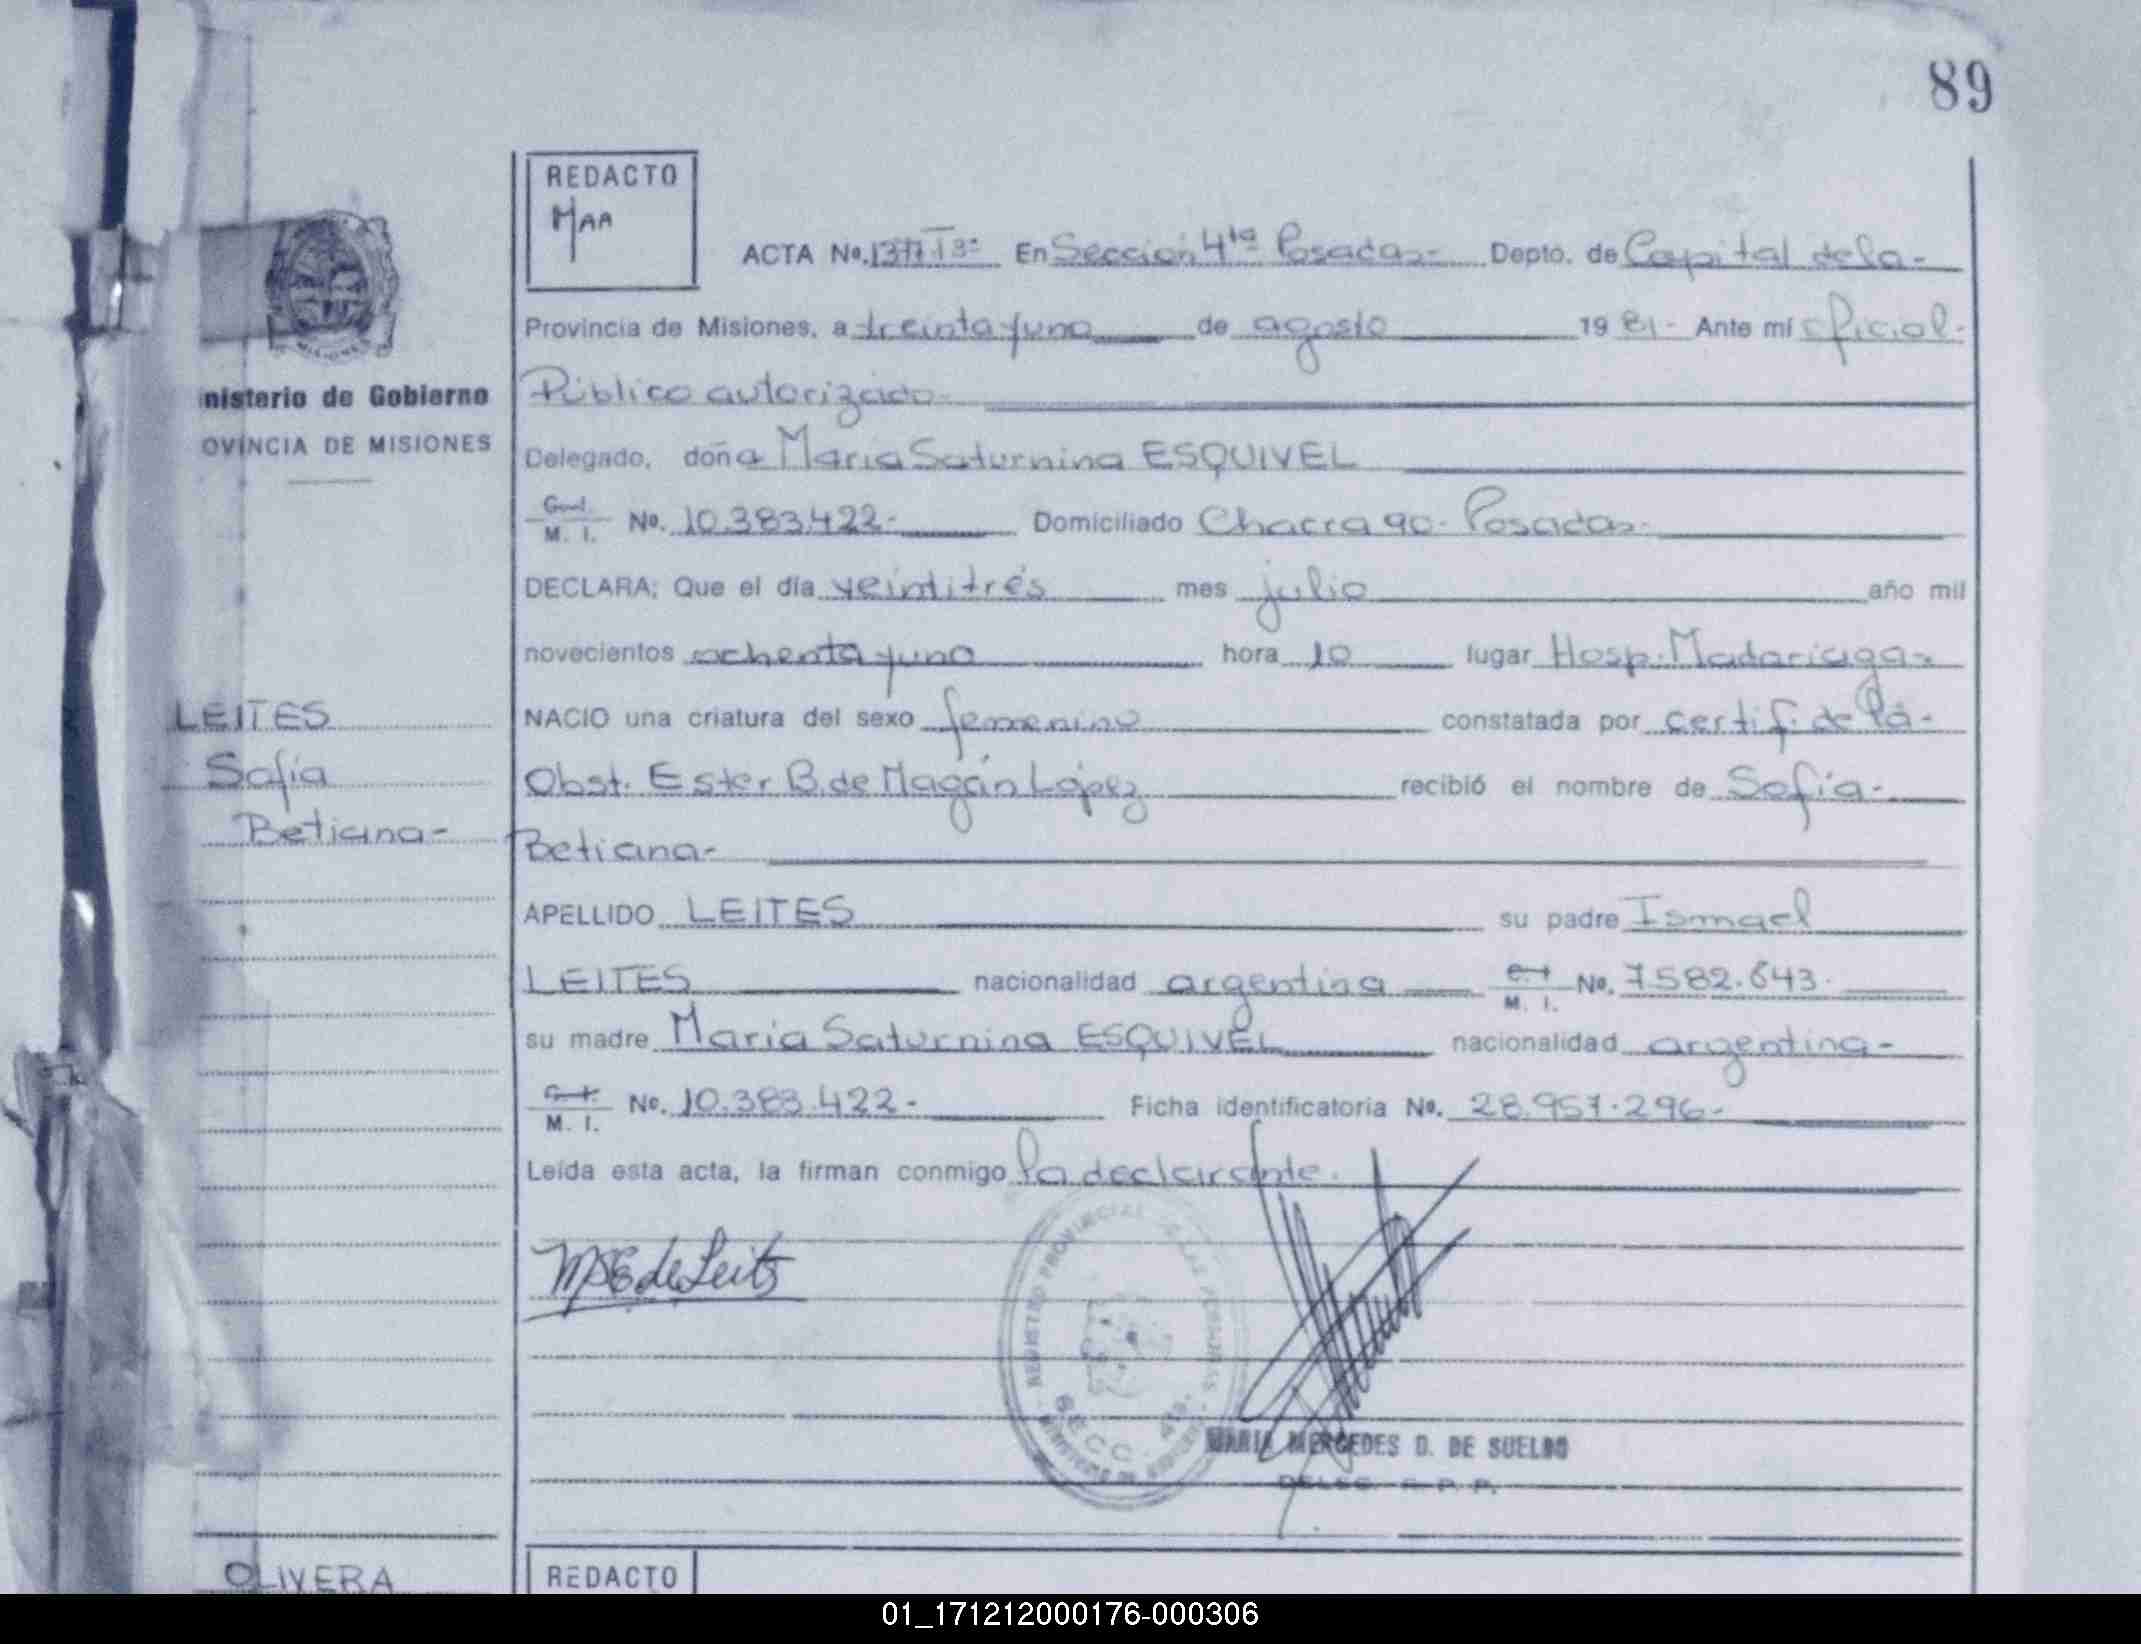 89
REDACTO
MAA
ACTA No. 1377 T3º En Sección 4ta Posadas- Depto. de Capital de la-
Provincia de Misiones, a treinta y uno de agosto 1981- Ante mí oficial-
nisterio de Gobierno
Público autorizado-
OVINCIA DE MISIONES
Delegado, doña María Saturnina ESQUIVEL
M. I. No. 10.383.422- Domiciliado Chacra 90- Posadas-
DECLARA: Que el día veintitrés mes julio año mil
novecientos ochenta y uno hora 10 lugar Hosp. Madariaga-
LEITES
NACIO una criatura del sexo femenino constatada por certif. de la-
Sofía
Obst. Ester B. de Magán López recibió el nombre de Sofía-
Beticina-
Beticina-
APELLIDO LEITES su padre Ismael
LEITES nacionalidad argentina M. I. No. 7582.643-
su madre María Saturnina ESQUIVEL nacionalidad argentina-
M. I. No. 10.383.422- Ficha identificatoria No. 28.957.296-
Leída esta acta, la firman conmigo la declarante.
MSE de Leites
REGISTRO PROVINCIAL DE LAS PERSONAS
SECC. 4ta.
MARIA MERCEDES D. DE SUELDO
DELEG. R. P. P.
OLIVERA
REDACTO
01_171212000176-000306